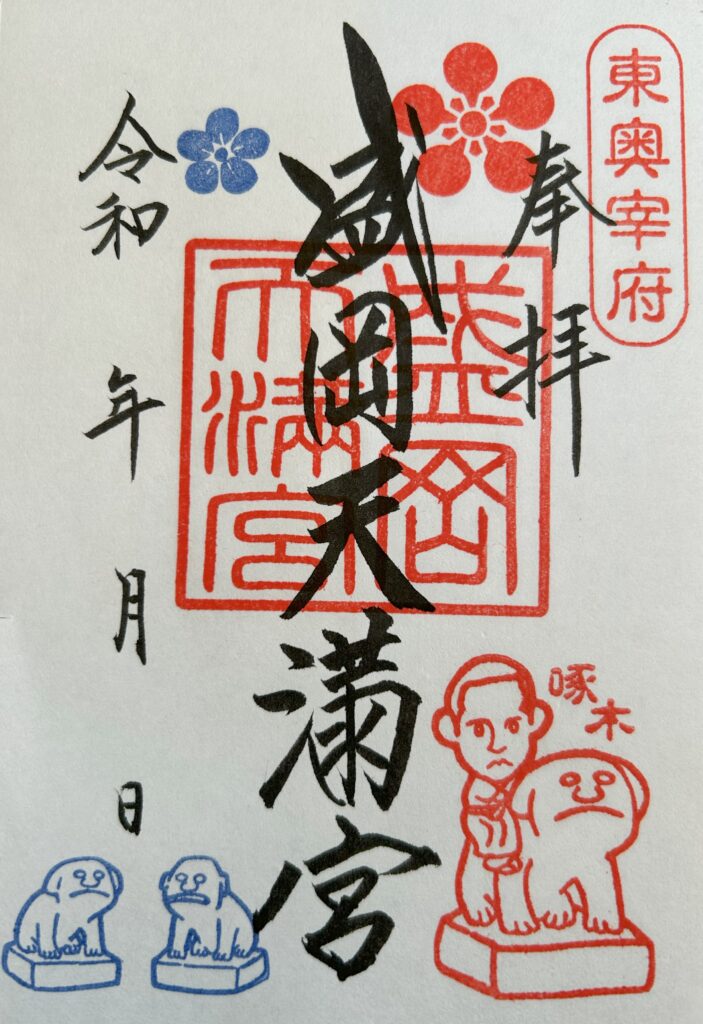 東奥宰府
奉拝
盛岡天満宮
盛岡
天満宮
令和 年 月 日
啄木